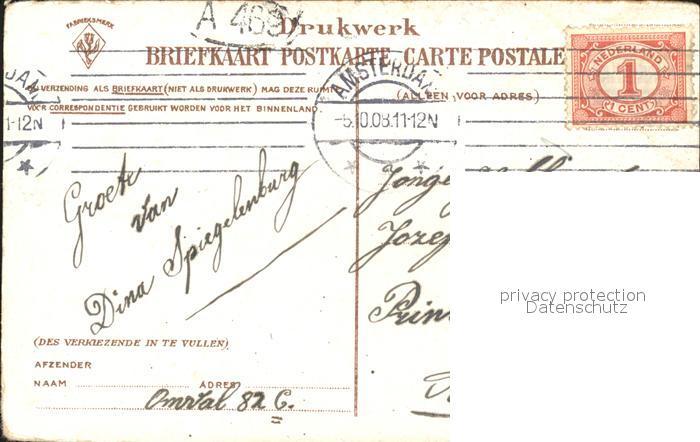 FABRIEKSMERK
A 469
Drukwerk
BRIEFKAART POSTKARTE CARTE POSTALE
BIJ VERZENDING ALS BRIEFKAART (NIET ALS DRUKWERK) MAG DEZE RUIMTE
VOOR CORRESPONDENTIE GEBRUIKT WORDEN VOOR HET BINNENLAND.
(ALLEEN VOOR ADRES)
NEDERLAND
1
1 CENT
1-12N
AMSTERDAM
-5.10.08.11-12N
Groete
van
Dina Spiegelenburg
Jonge
Jozef
Prin
privacy protection
Datenschutz
(DES VERKIEZENDE IN TE VULLEN)
AFZENDER
NAAM
ADRES
Omval 82 C.